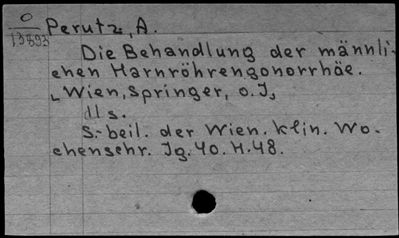 O
13893
Perutz, A.
Die Behandlung der männli-
chen Harnröhrengonorrhöe.
Wien, Springer, o.J.
11 s.
S.-beil. der Wien. klin. Wo-
chenschr. Jg. 40. H. 48.